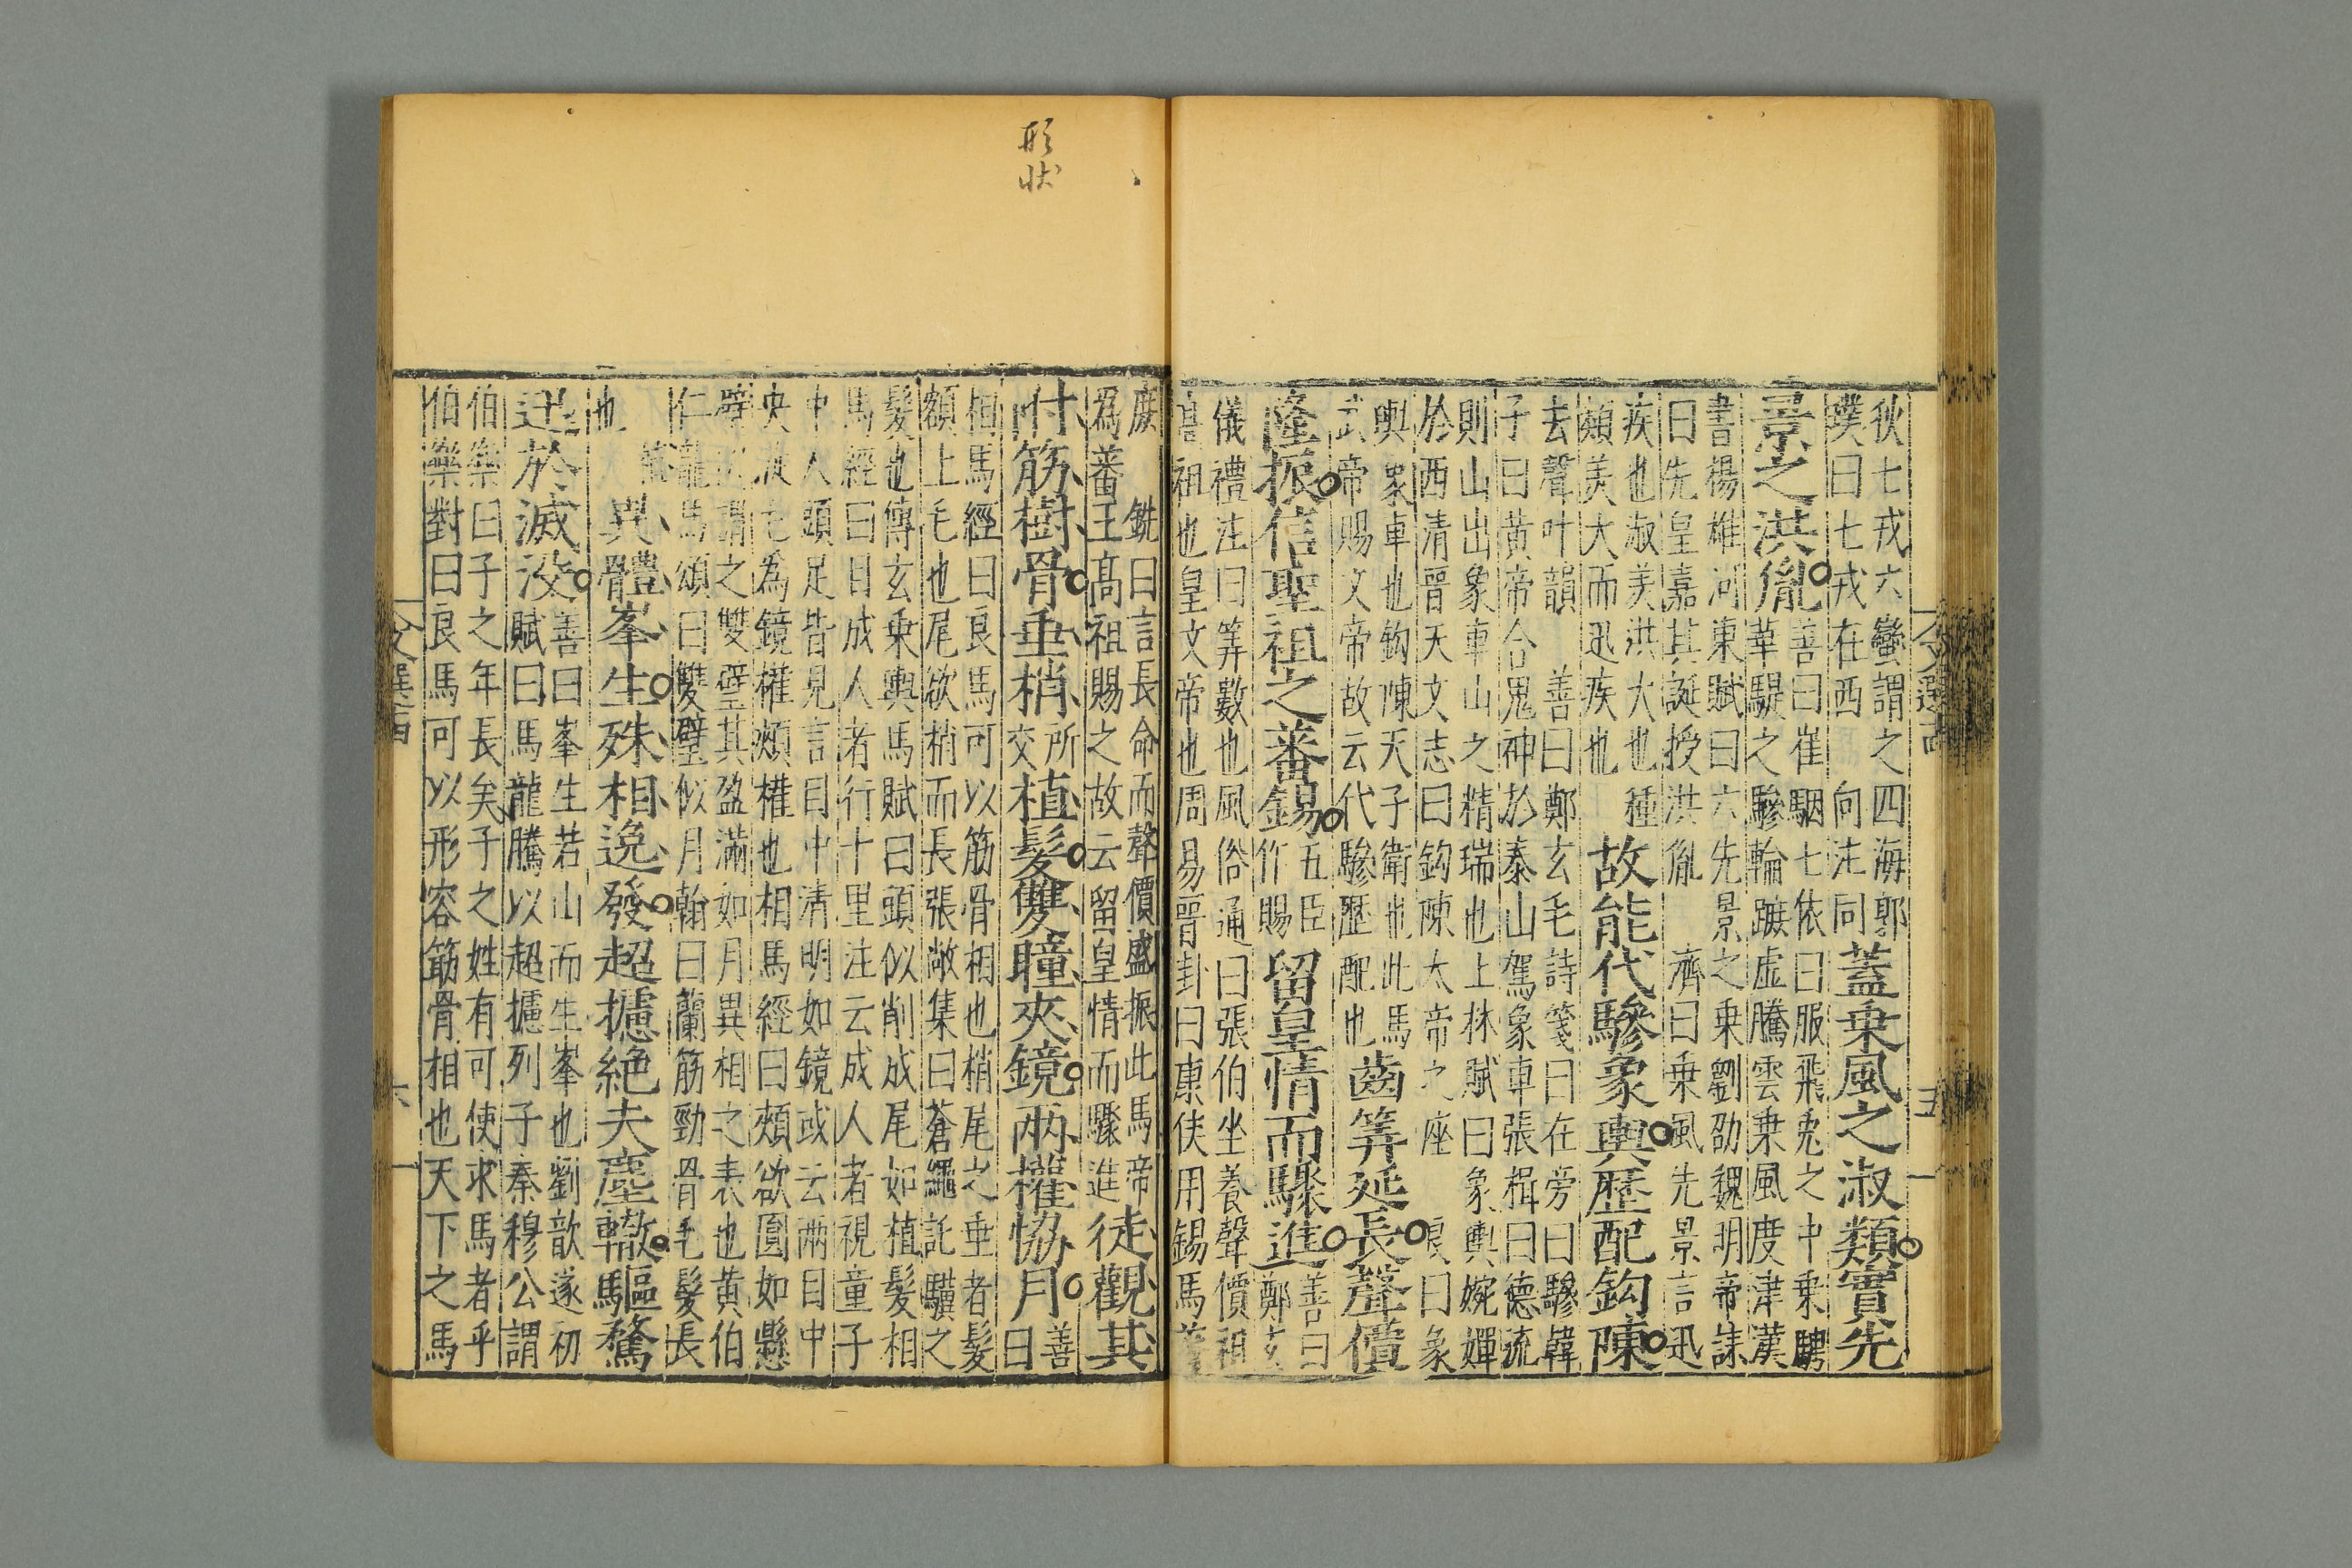 狄七戎六蠻謂之四海郭
璞曰七戎在西 向注同
蓋乗風之淑類實先
景之洪胤
善曰崔駰七依曰服飛兎之中乗騁
華騠之驂輪蹶虚騰雲乗風度津漢
書楊雄河東賦曰六先景之乗劉劭魏明帝誄
曰先皇嘉其誕授洪胤 濟曰乗風先景言迅
疾也淑美洪大也 種
類美大而迅疾也
故能代驂象輿歴配鈎陳
去聲叶韻 善曰鄭玄毛詩箋曰在旁曰驂韓
子曰黄帝合鬼神於泰山駕象車張揖曰德流
則山出象車山之精瑞也上林賦曰象輿婉嬋
於西清晉天文志曰鈎陳太帝之座 良曰象
輿象車也鈎陳天子衛也此馬
武帝賜文帝故云代驂歴配也
齒筭延長聲價
隆振信聖祖之蕃錫
五臣
作賜
留皇情而驟進
善曰
鄭玄
儀禮注曰筭數也風俗通曰張伯坐養聲價祖
祖也皇文帝也周易晉卦曰康侯用錫馬蕃
文選
五
形状
庶 銑曰言長命而聲價盛振此馬帝
為蕃王高祖賜之故云留皇情而驟進
徒觀其
附筋樹骨垂梢
所
交
植髮雙瞳夾鏡兩權恊月
善
曰
相馬經曰良馬可以筋骨相也梢尾之垂者髮
額上毛也尾欲梢而長張敞集曰蒼蠅託驥之
髮也傅玄乗輿馬賦曰頭似削成尾如植髮相
馬經曰目成人者行十里注云成人者視童子
中人頭足皆見言目中清明如鏡或云兩目中
央旋毛為鏡權頰權也相馬經曰頰欲圓如懸
璧因謂之雙璧其盈滿如月異相之表也黄伯
仁龍馬頌曰雙璧似月翰曰蘭筋勁骨毛髮長
也
異體峯生殊相逸發超攄絶夫塵轍驅騖
迅於滅没
善曰峯生若山而生峯也劉歆遂初
賦曰馬龍騰以超攄列子秦穆公謂
伯樂曰子之年長矣子之姓有可使求馬者乎
伯樂對曰良馬可以形容筋骨相也天下之馬
文選
六